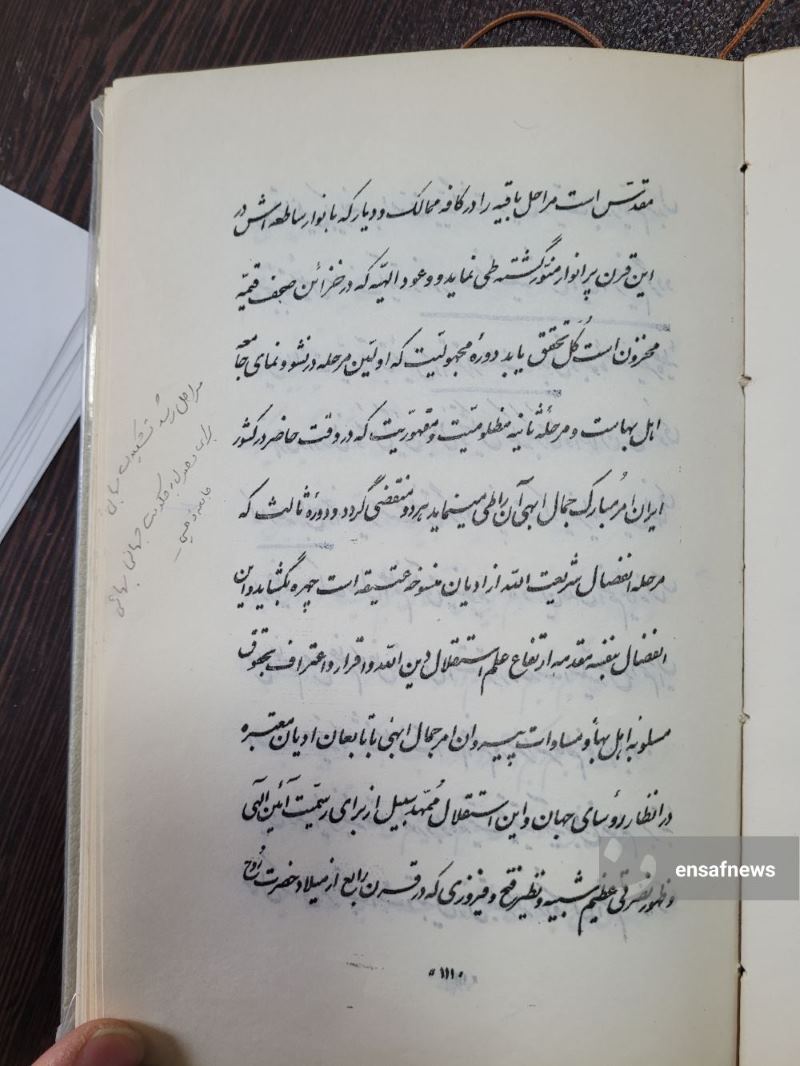 مقدّس است مراحل باقیه را در کافه ممالک و دیار که بانوار ساطعه اش در
این قرن پر انوار منوّر گشته طی نماید و وعود الهیّه که در خزائن صحف قیّمه
مخزون است کُل تحقق یابد دورهٔ مجهولیّت که اوّلین مرحله در نشو و نمای جامعه
اهل بهاست و مرحلهٔ ثانیه مظلومیّت و مقهوریّت که در وقت حاضر در کشور
ایران امر مبارک جمال ابهی آن را طی مینماید هر دو منقضی گردد و دورهٔ ثالث که
مرحله انفصال شریعت الله از ادیان منسوخه عتیقه است چهره بگشاید و این
انفصال بنفسه مقدمه ارتفاع علم استقلال دین الله و اقرار و اعتراف بحقوق
مسلوبه اهل بهأ و مساوات پیروان امر جمال ابهی با تابعان ادیان معتبره
در انظار رؤسای جهان و این استقلال مُمهّد سبیل از برای رسمیّت آئین الهی
و ظهور نصرتی عظیم شبیه و نظیر فتح و فیروزی که در قرن رابع از میلاد حضرت رُوح
۱۱۱
مراحل رشد تشکیلات بهائی
برای وصول به حکومت جهانی بهائی
ensafnews